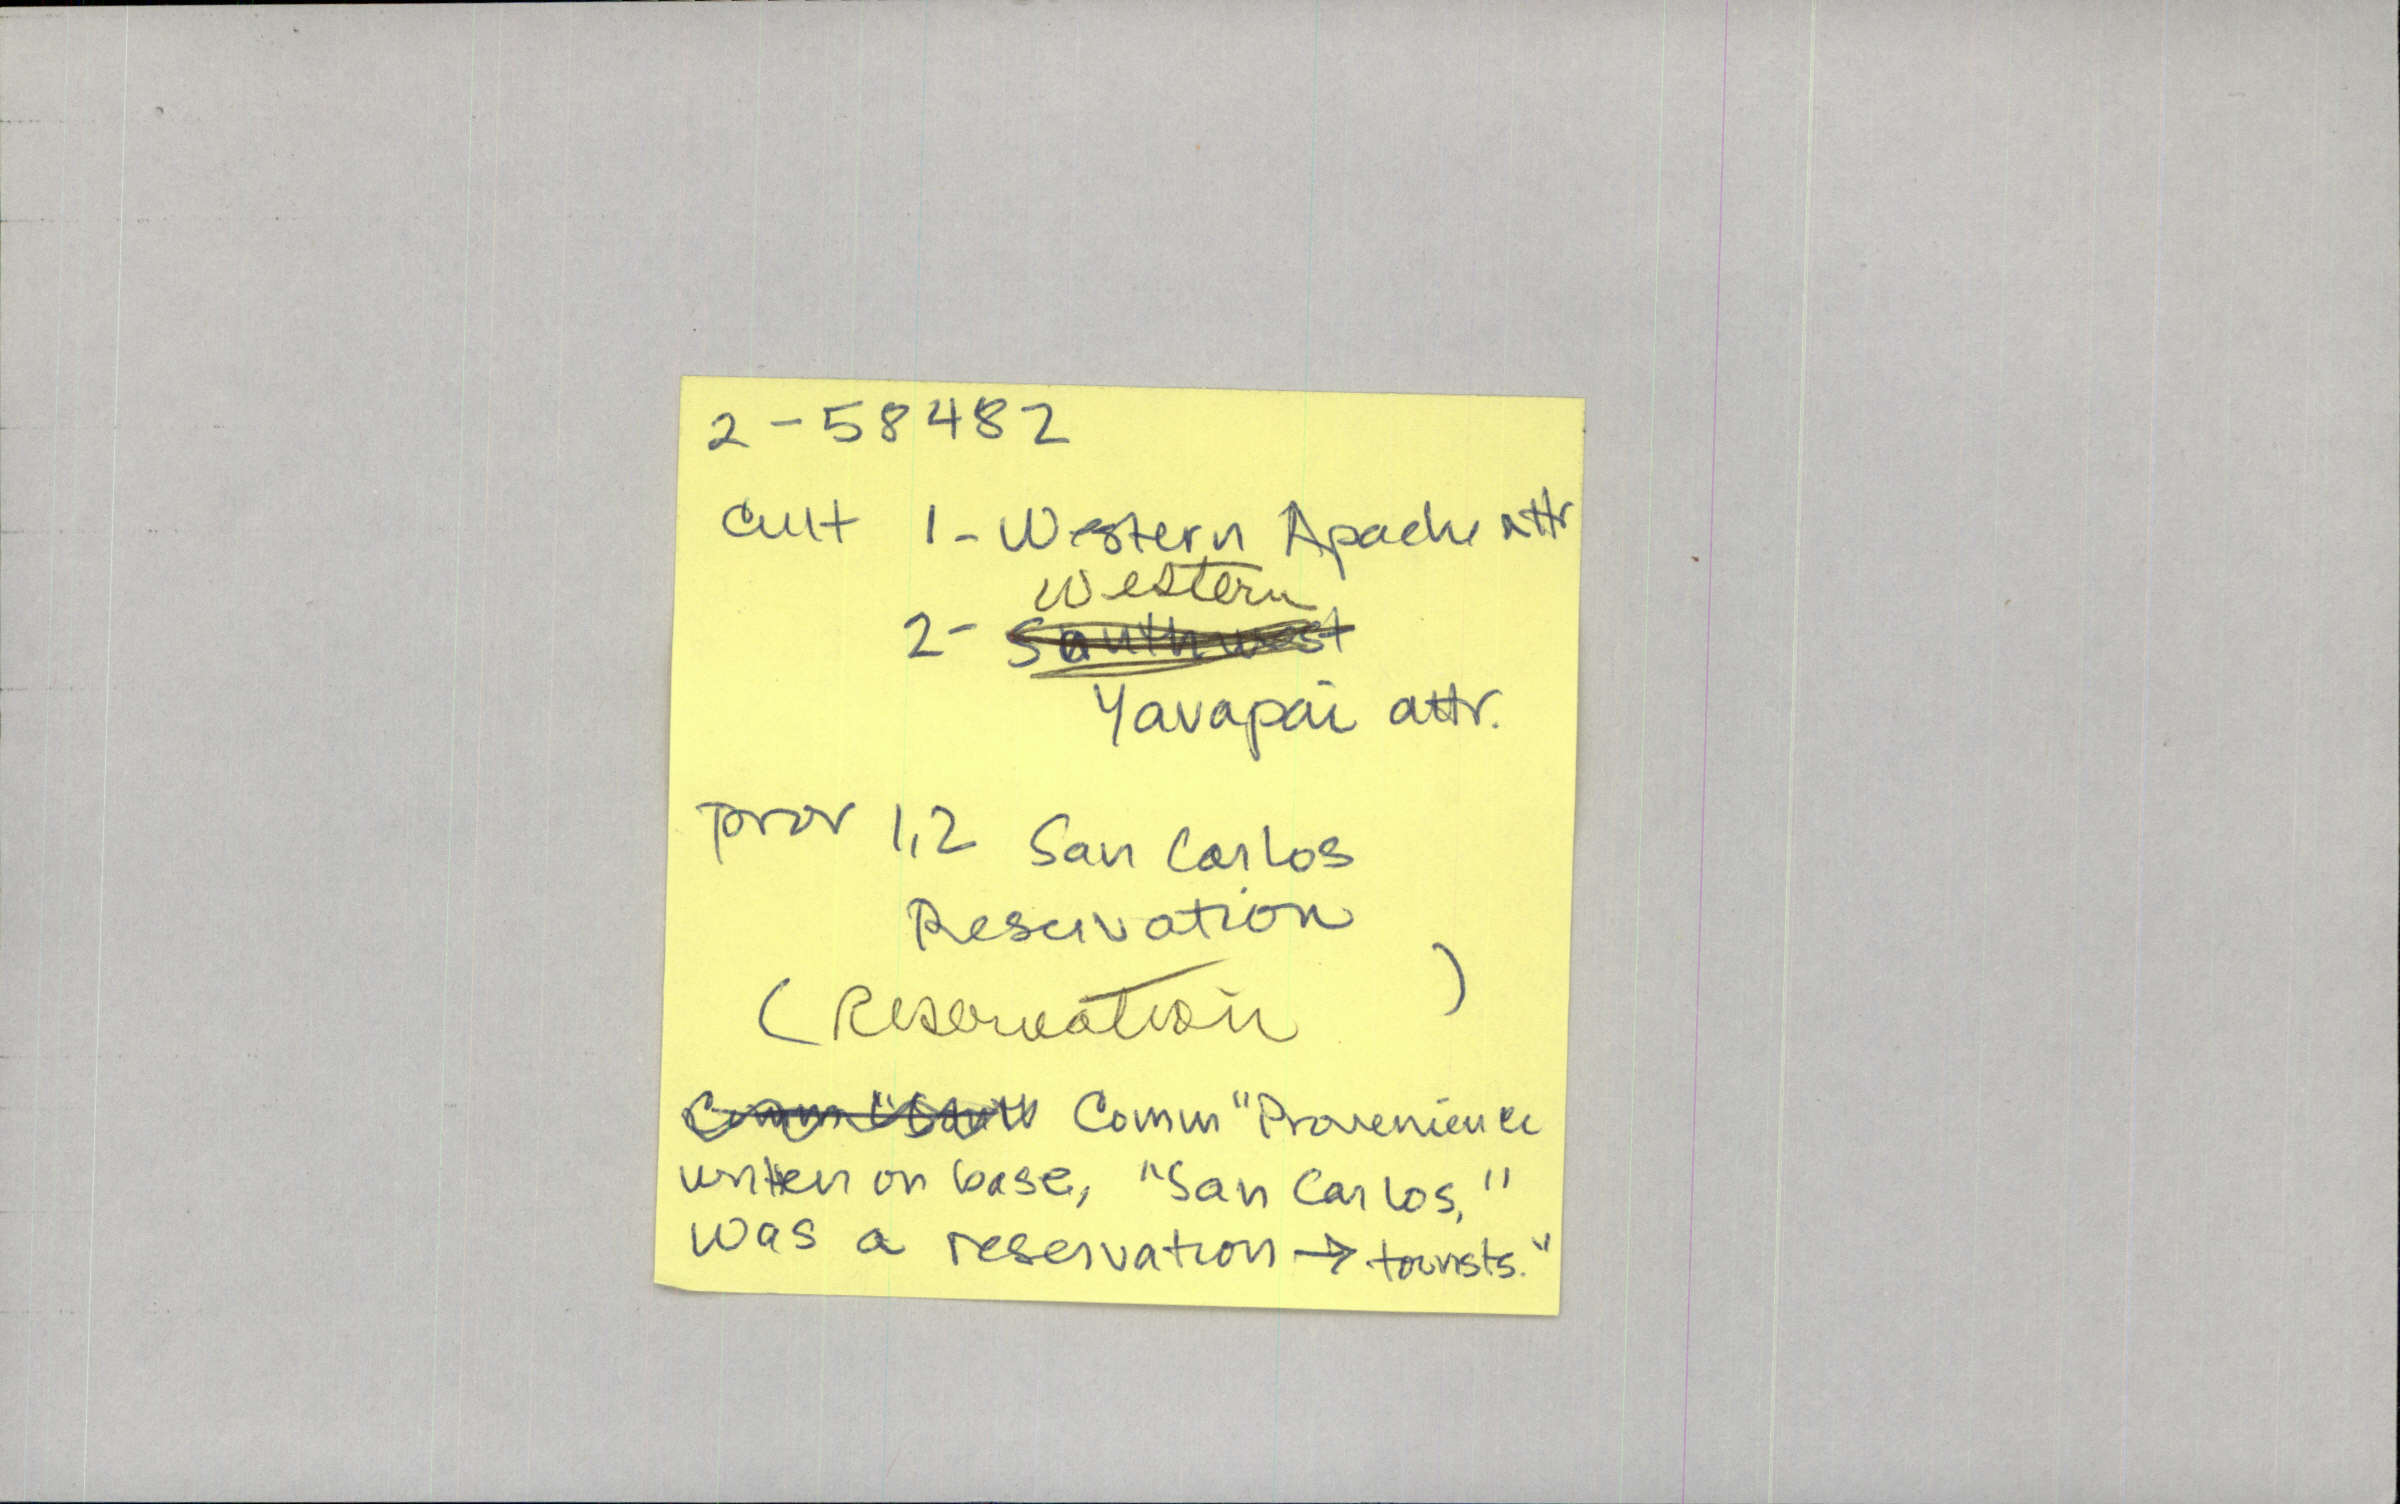 2-58482
Cult 1- Western Apache attr
Western
2- Southwest
Yavapai attr.
prov 1,2 San Carlos
Reservation
(Reservation)
Comm "San Comm "Provenience
written on base, "San Carlos,"
was a reservation → tourists."